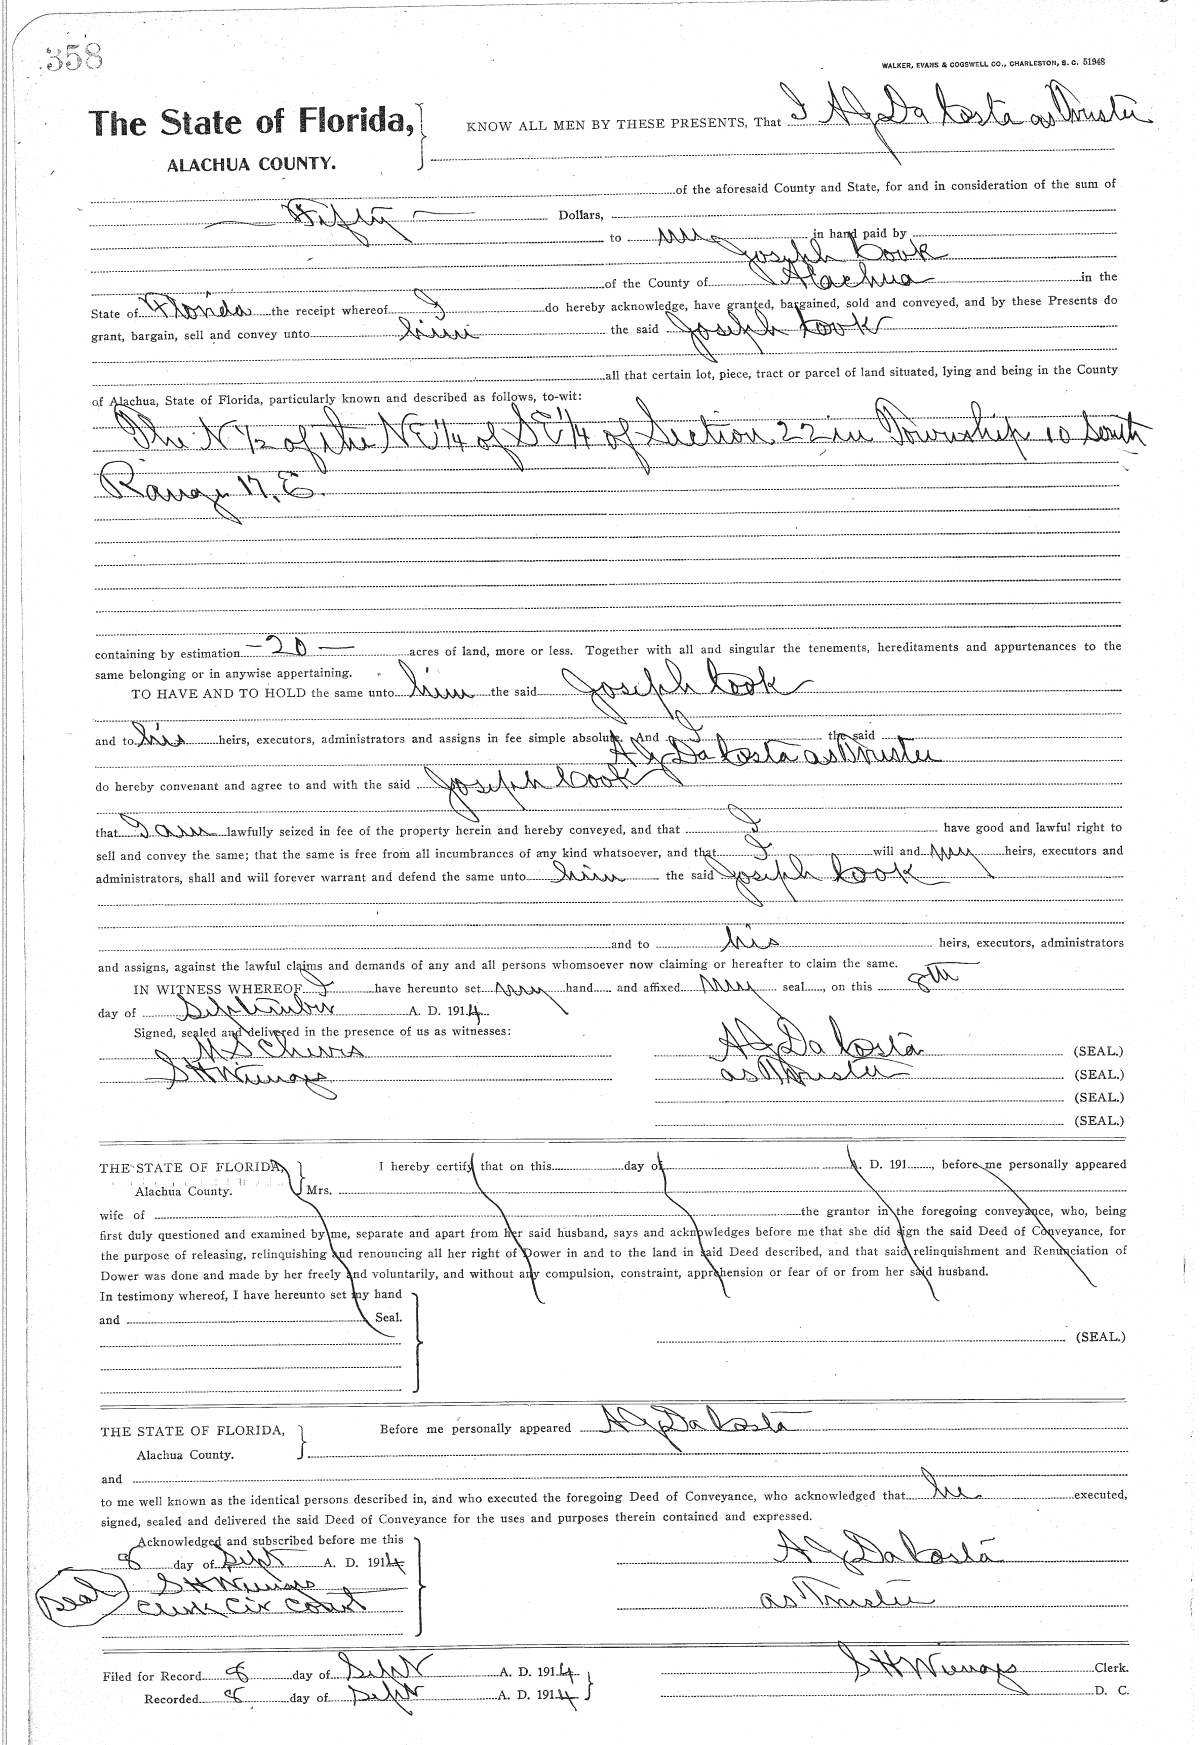 358
WALKER, EVANS & COGSWELL CO., CHARLESTON, S. C. 51948
The State of Florida,
ALACHUA COUNTY.
KNOW ALL MEN BY THESE PRESENTS, That I A J Da Costa as Trustee
of the aforesaid County and State, for and in consideration of the sum of
Fifty Dollars,
to me in hand paid by
Joseph Cook
of the County of Alachua in the
State of Florida the receipt whereof I do hereby acknowledge, have granted, bargained, sold and conveyed, and by these Presents do
grant, bargain, sell and convey unto him the said Joseph Cook
all that certain lot, piece, tract or parcel of land situated, lying and being in the County
of Alachua, State of Florida, particularly known and described as follows, to-wit:
The N 1/2 of the NE 1/4 of SE 1/4 of Section 22 in Township 10 South
Range 17, E.
containing by estimation - 20 - acres of land, more or less. Together with all and singular the tenements, hereditaments and appurtenances to the
same belonging or in anywise appertaining.
TO HAVE AND TO HOLD the same unto him the said Joseph Cook
and to his heirs, executors, administrators and assigns in fee simple absolute. And I the said
A J Da Costa as Trustee
do hereby convenant and agree to and with the said Joseph Cook
that I am lawfully seized in fee of the property herein and hereby conveyed, and that I have good and lawful right to
sell and convey the same; that the same is free from all incumbrances of any kind whatsoever, and that I will and my heirs, executors and
administrators, shall and will forever warrant and defend the same unto him the said Joseph Cook
and to his heirs, executors, administrators
and assigns, against the lawful claims and demands of any and all persons whomsoever now claiming or hereafter to claim the same.
IN WITNESS WHEREOF I have hereunto set my hand and affixed my seal, on this 8th
day of September A. D. 1914.
Signed, sealed and delivered in the presence of us as witnesses:
A J Da Costa (SEAL.)
S H Wienges as Trustee (SEAL.)
(SEAL.)
(SEAL.)
THE STATE OF FLORIDA,
Alachua County.
I hereby certify that on this day of A. D. 191, before me personally appeared
Mrs.
wife of the grantor in the foregoing conveyance, who, being
first duly questioned and examined by me, separate and apart from her said husband, says and acknowledges before me that she did sign the said Deed of Conveyance, for
the purpose of releasing, relinquishing and renouncing all her right of Dower in and to the land in said Deed described, and that said relinquishment and Renunciation of
Dower was done and made by her freely and voluntarily, and without any compulsion, constraint, apprehension or fear of or from her said husband.
In testimony whereof, I have hereunto set my hand
and Seal.
(SEAL.)
THE STATE OF FLORIDA,
Alachua County.
Before me personally appeared A J Da Costa
and
to me well known as the identical persons described in, and who executed the foregoing Deed of Conveyance, who acknowledged that he executed,
signed, sealed and delivered the said Deed of Conveyance for the uses and purposes therein contained and expressed.
Acknowledged and subscribed before me this
8 day of Sept A. D. 1914
A J Da Costa
S H Wienges
seal
Clerk Cir Court
as Trustee
Filed for Record 8 day of Sept A. D. 1914
S H Wienges Clerk.
Recorded 8 day of Sept A. D. 1914
D. C.